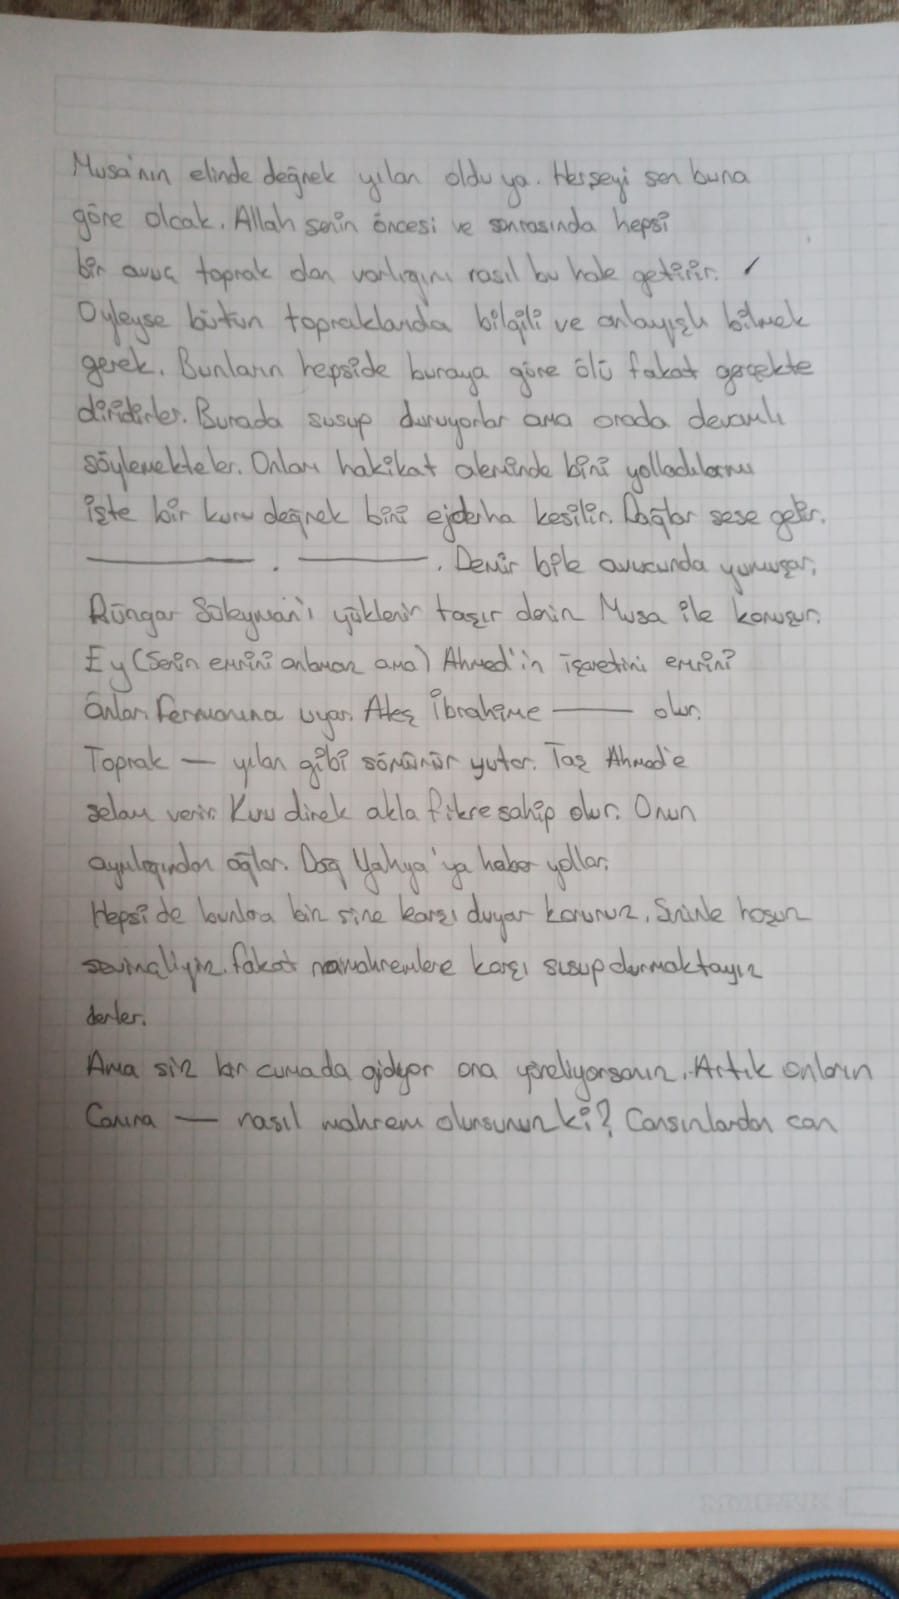 Musa'nın elinde değnek yılan oldu ya. Herşeyi sen buna
göre olcak. Allah senin öncesi ve sonrasında hepsi
bir avuç toprak dan varlığını nasıl bu hale getirir.
Öyleyse bütün topraklarıda bilgili ve anlayışlı bilmek
gerek. Bunların hepside buraya göre ölü fakat gerçekte
diridirler. Burada susup duruyorlar ama orada devamlı
söylemekteler. Onları hakikat aleminde bini yolladılarmı
işte bir kuru değnek bini ejderha kesilir. Dağlar sese gelir.
. . Demir bile avucunda yumuşar,
Rüngar Süleyman'ı yüklenir taşır denin Musa ile konuşur.
Ey (Senin emrini anlamaz ama) Ahmed'in işaretini emrini
Anlar. Fermanına uyar. Ateş İbrahime — olur.
Toprak — yılan gibi sömürür yutar. Taş Ahmed'e
selam verir. Kuru direk akla fikre sahip olur. Onun
ayrılığından ağlar. Dağ Yahya'ya haber yollar.
Hepside bunlara bin sine karşı duyar konuruz,
fakat namahremlere karşı susup durmaktayız
derler.
Ama siz bir cumada gidiyor ona yöneliyorsanız. Artık onların
Canına — nasıl mahrem olursunuz ki? Cansızlardan can